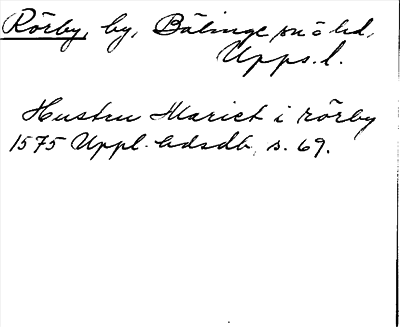 Rörby, by, Bälinge sn o hd,
Upps. l.
Hustru Mariet i rörby
1575 Uppl. hdsdb, s. 69.